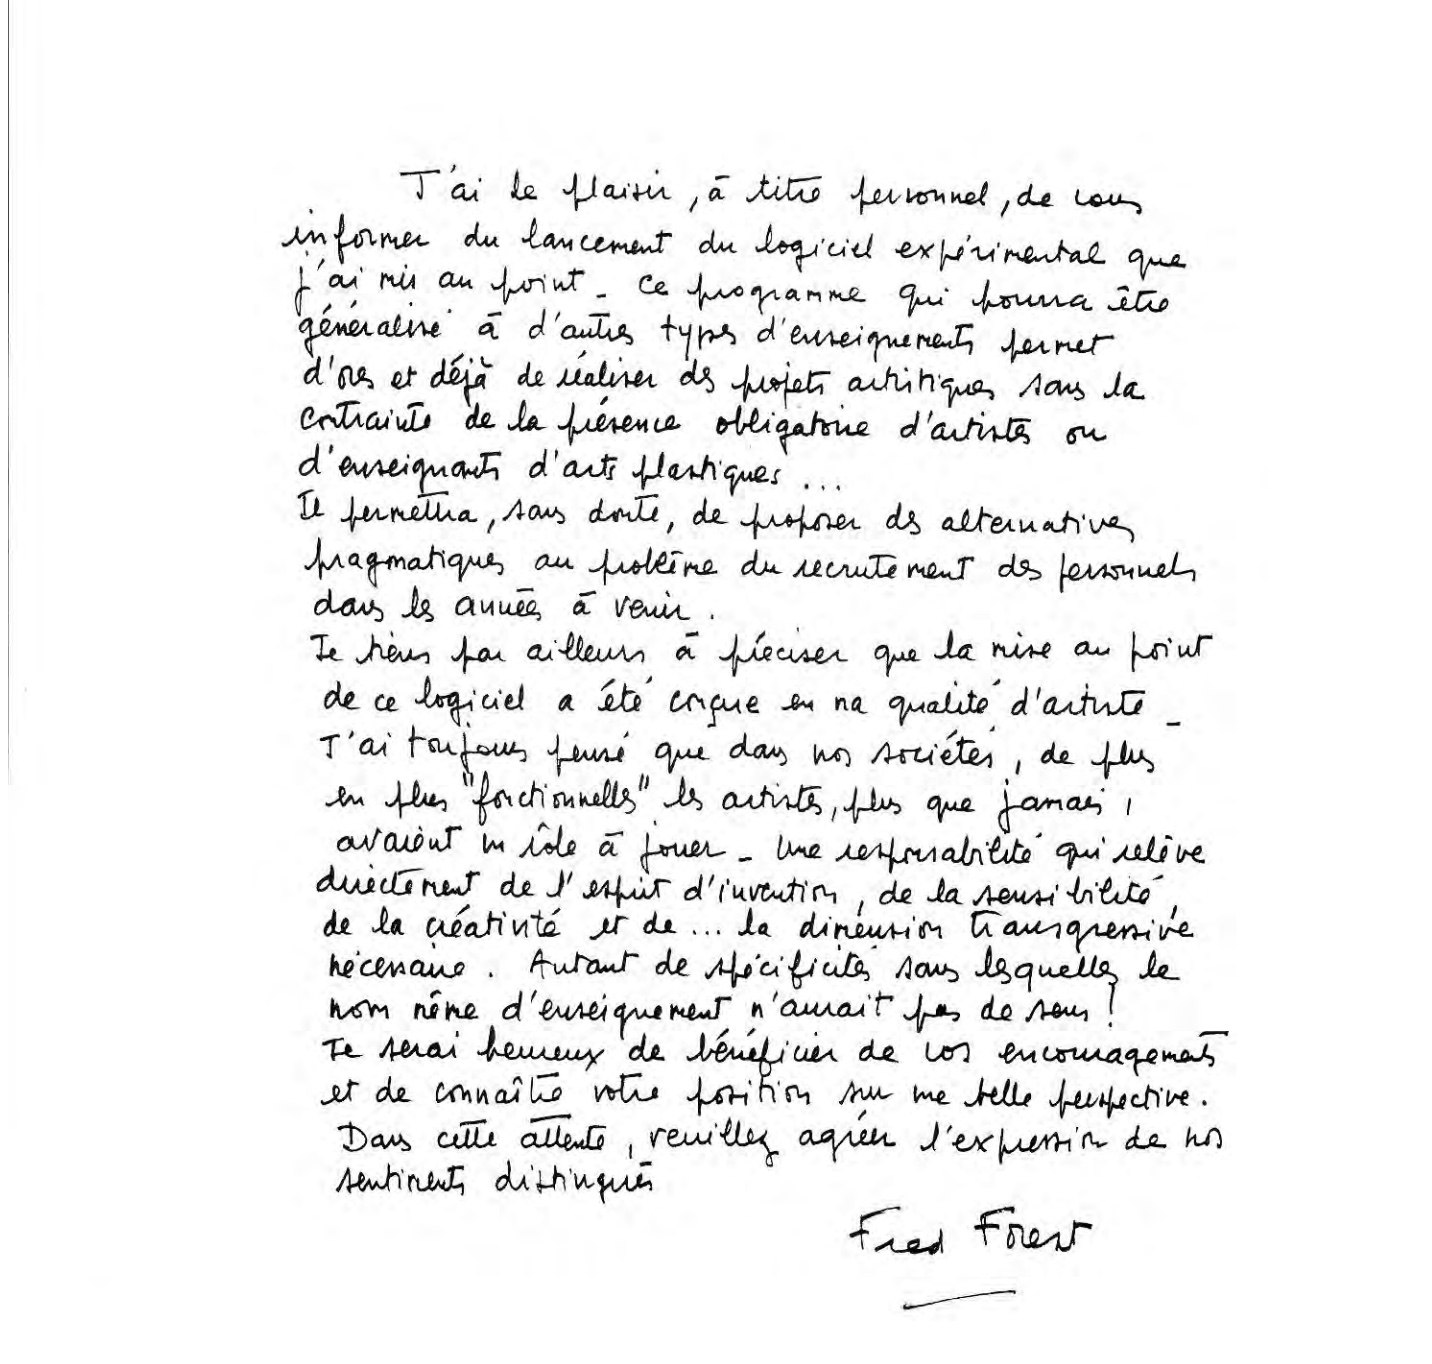 J'ai le plaisir, à titre personnel, de vous
informer du lancement du logiciel expérimental que
j'ai mis au point _ Ce programme qui pourra être
généralisé à d'autres types d'enseignements permet
d'ores et déjà de réaliser des projets artistiques sans la
contrainte de la présence obligatoire d'artistes ou
d'enseignants d'arts plastiques ...
Il permettra, sans doute, de proposer des alternatives
pragmatiques au problème du recrutement des personnels
dans les années à venir.
Je tiens par ailleurs à préciser que la mise au point
de ce logiciel a été conçue en ma qualité d'artiste _
J'ai toujours pensé que dans nos sociétés, de plus
en plus "fonctionnelles" les artistes, plus que jamais,
avaient un rôle à jouer _ Une responsabilité qui relève
directement de l'esprit d'invention, de la sensibilité,
de la créativité et de ... la dimension transgressive
nécessaire. Autant de spécificités sans lesquelles le
nom même d'enseignement n'aurait pas de sens !
Je serai heureux de bénéficier de vos encouragements
et de connaître votre position sur une telle perspective.
Dans cette attente, veuillez agréer l'expression de nos
sentiments distingués
Fred Forest